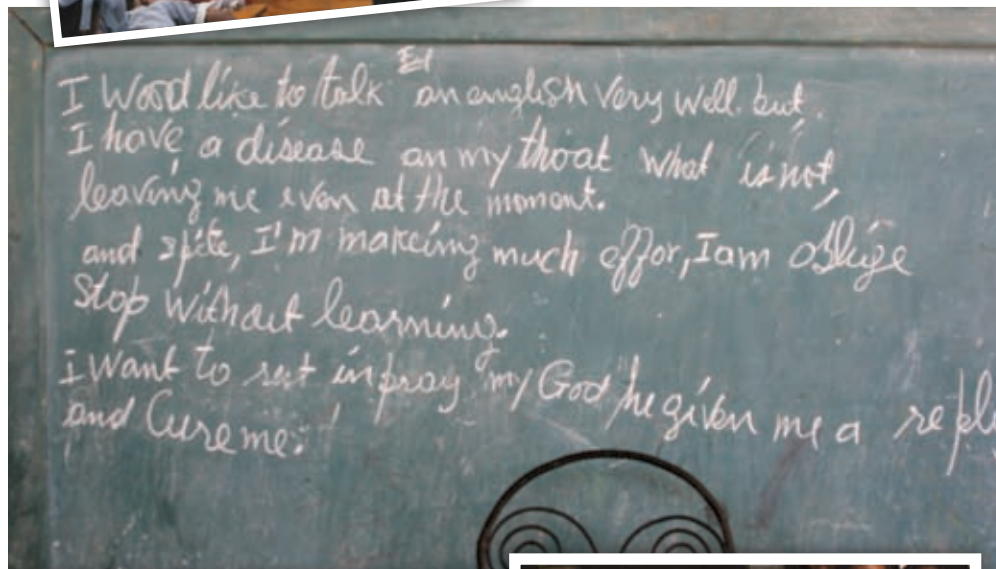 I Wood like to talk an english very well. but.
I have a disease an my thoat what is not,
leaving me even at the moment.
and spite, I'm makeing much effor, I am oblige
Stop without learning.
I Want to in pray my God he given me a
and Cure me.